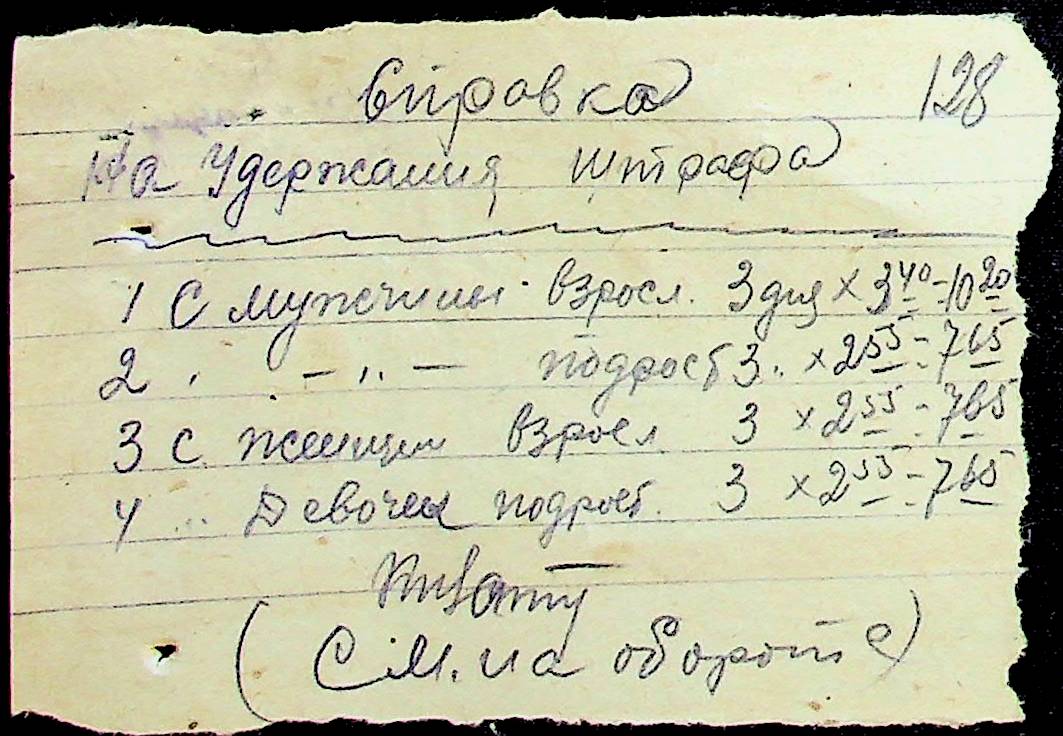 Справка 128
На Удержания штрафа
1 С мужчины взросл. 3 дня × 3 40 - 10 20
2 . — „ — подрост 3. × 2 55 - 7 65
3 с женщин взросл. 3 × 2 55 - 7 65
4 ... Девочек подрост. 3 × 2 55 - 7 65
(См. на обороте)